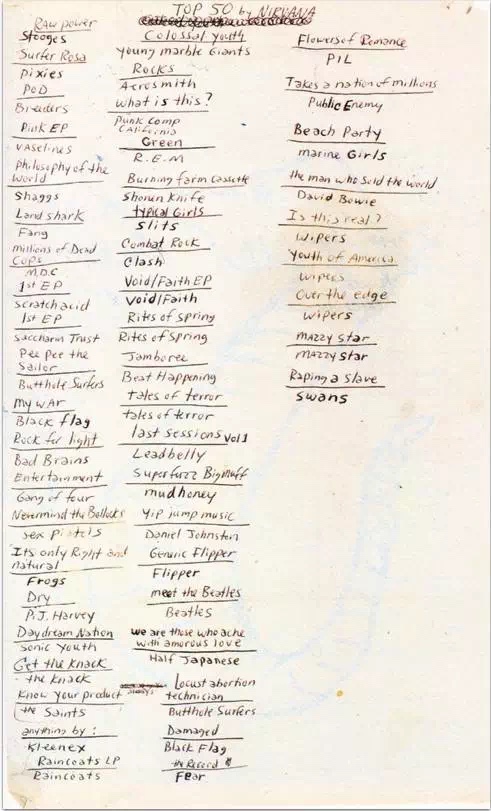 TOP 50 by NIRVANA
Raw power
Stooges
Surfer Rosa
Pixies
POD
Breeders
Pink EP
Vaselines
Philosophy of the
World
Shaggs
Land shark
Fang
millions of Dead
Cops
M.D.C
1st EP
Scratch acid
1st EP
Saccharin Trust
Pee Pee the
Sailor
Butthole Surfers
My WAr
Black flag
Rock for light
Bad Brains
Entertainment
Gang of four
Nevermind the Bollocks
sex pistols
Its only Right and
natural
Frogs
Dry
P.J. Harvey
Daydream Nation
Sonic Youth
Get the Knack
the Knack
Know your product
the Saints
anything by:
Kleenex
Raincoats LP
Raincoats
Colossal youth
young marble Giants
Rocks
Aerosmith
What is this?
Punk Comp
CAlifornia
Green
R.E.M
Burning farm Cassette
Shonen Knife
typical Girls
Slits
Combat Rock
Clash
Void/Faith EP
Void/Faith
Rites of Spring
Rites of Spring
Jamboree
Beat Happening
tales of terror
tales of terror
last sessions Vol 1
Leadbelly
Superfuzz Bigmuff
mudhoney
Yip jump music
Daniel Johnston
Generic Flipper
Flipper
meet the Beatles
Beatles
we are those who ache
with amorous love
Half Japanese
Locust abortion
technician
Butthole Surfers
Damaged
Black Flag
the Record
Fear
Flowers of Romance
PIL
Takes a nation of millions
Public Enemy
Beach Party
marine Girls
the man who Sold the world
David Bowie
Is this real?
Wipers
Youth of America
Wipers
Over the edge
Wipers
mAzzy Star
mAzzy Star
Raping a Slave
Swans